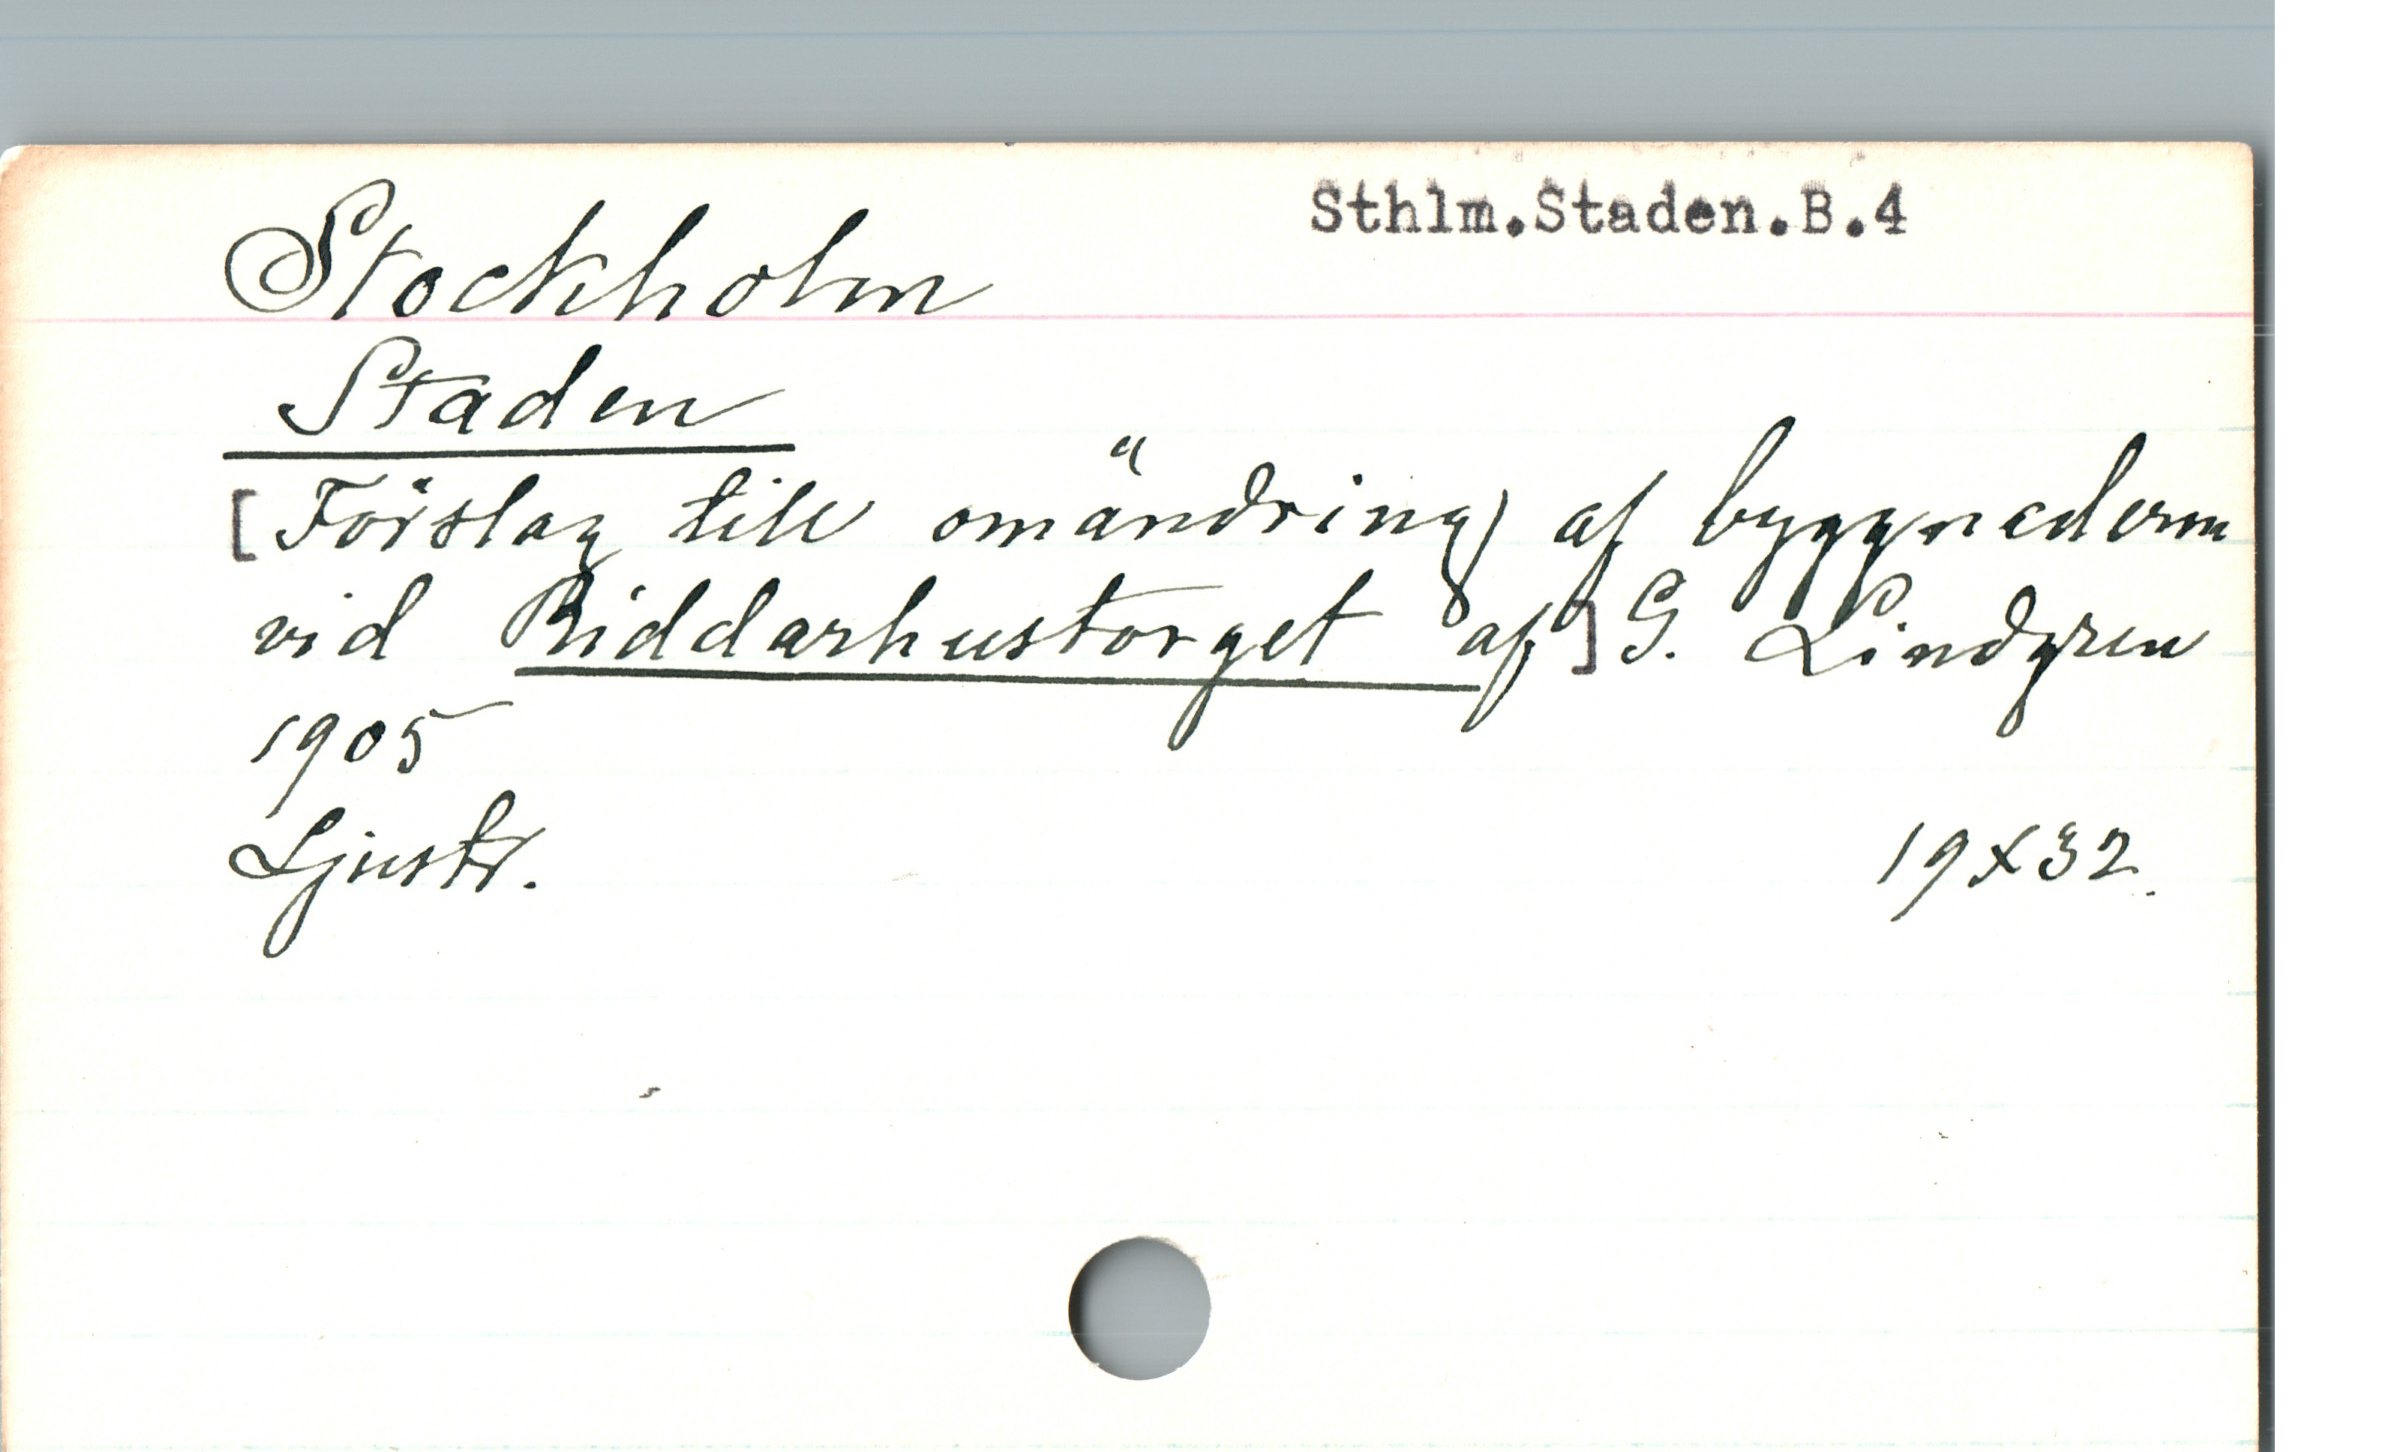 Sthlm.Staden.B.4
Stockholm
Staden
[Förslag till omändring af byggnaderna
vid Riddarhustorget af] G. Lindgren
1905
Ljustr.
19x32.